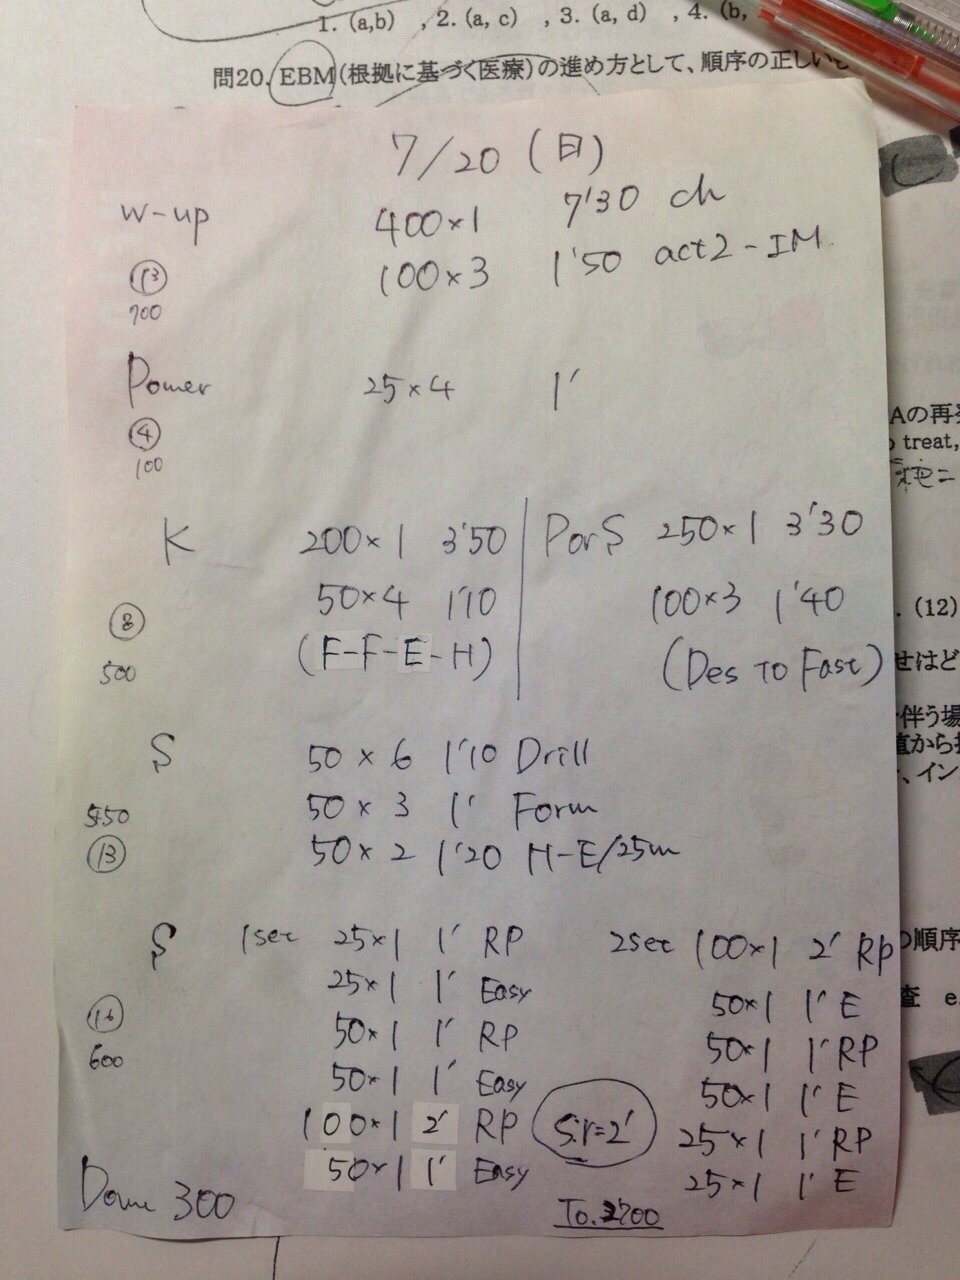 1. (a,b) , 2. (a, c) , 3. (a, d) , 4. (b,
問20. EBM(根拠に基づく医療)の進め方として、順序の正しい
7/20 (日)
W-up 400×1 7'30 ch
100×3 1'50 act2-IM
⑬
700
Power 25×4 1'
④
100
K 200×1 3'50
50×4 1'10
(F-F-E-H)
⑧
500
PorS 250×1 3'30
100×3 1'40
(Des To Fast)
S 50×6 1'10 Drill
50×3 1' Form
50×2 1'20 H-E/25m
550
⑬
S 1set 25×1 1' RP
25×1 1' Easy
50×1 1' RP
50×1 1' Easy
100×1 2' RP
50×1 1' Easy
⑯
600
S.r=2'
2set 100×1 2' RP
50×1 1' E
50×1 1' RP
50×1 1' E
25×1 1' RP
25×1 1' E
Down 300
To. 2700
Aの再
treat,
. (12)
せはど
伴う場
値から
、イン
の順序
査 e